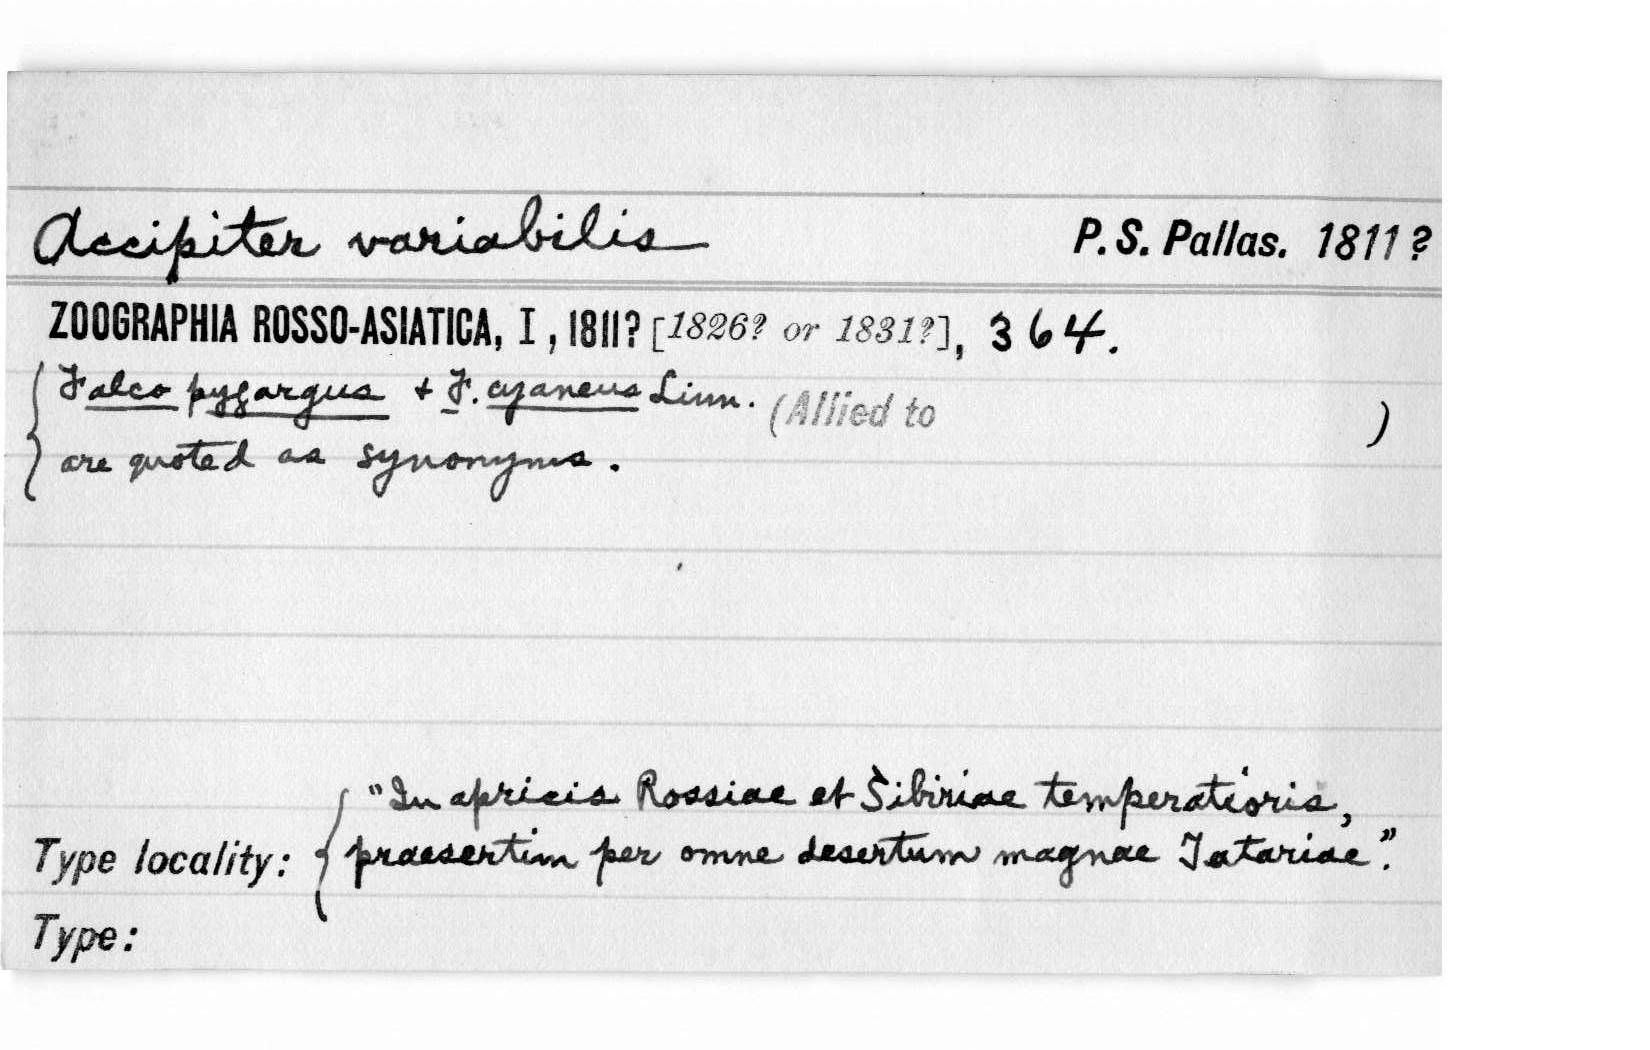 Accipiter variabilis P. S. Pallas. 1811?
ZOOGRAPHIA ROSSO-ASIATICA, I, 1811? [1826? or 1831?], 364.
Falco pygargus + F. cyaneus Linn. (Allied to )
are quoted as synonyms.
"In apricis Rossiae et Sibiriae temperatioris,
Type locality: praesertim per omne desertum magnae Tatariae".
Type: